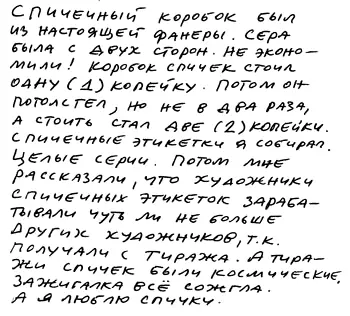 СПИЧЕЧНЫЙ КОРОБОК БЫЛ
ИЗ НАСТОЯЩЕЙ ФАНЕРЫ. СЕРА
БЫЛА С ДВУХ СТОРОН. НЕ ЭКОНО-
МИЛИ! КОРОБОК СПИЧЕК СТОИЛ
ОДНУ (1) КОПЕЙКУ. ПОТОМ ОН
ПОТОЛСТЕЛ, НО НЕ В ДВА РАЗА,
А СТОИТЬ СТАЛ ДВЕ (2) КОПЕЙКИ.
СПИЧЕЧНЫЕ ЭТИКЕТКИ Я СОБИРАЛ.
ЦЕЛЫЕ СЕРИИ. ПОТОМ МНЕ
РАССКАЗАЛИ, ЧТО ХУДОЖНИКИ
СПИЧЕЧНЫХ ЭТИКЕТОК ЗАРАБА-
ТЫВАЛИ ЧУТЬ ЛИ НЕ БОЛЬШЕ
ДРУГИХ ХУДОЖНИКОВ, Т.К.
ПОЛУЧАЛИ С ТИРАЖА. А ТИРА-
ЖИ СПИЧЕК БЫЛИ КОСМИЧЕСКИЕ.
ЗАЖИГАЛКА ВСЁ СОЖГЛА.
А Я ЛЮБЛЮ СПИЧКИ.